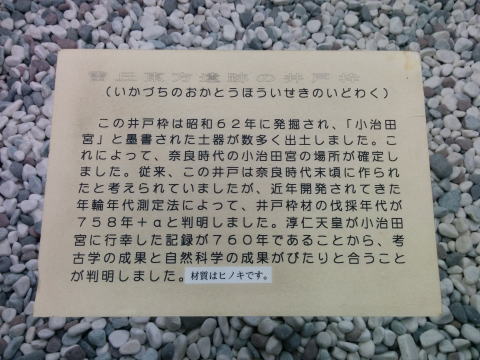 雷丘東方遺跡の井戸枠
（いかづちのおかとうほういせきのいどわく）
この井戸枠は昭和６２年に発掘され、「小治田
宮」と墨書された土器が数多く出土しました。こ
れによって、奈良時代の小治田宮の場所が確定し
ました。従来、この井戸は奈良時代末頃に作られ
たと考えられていましたが、近年開発されてきた
年輪年代測定法によって、井戸枠材の伐採年代が
７５８年＋αと判明しました。淳仁天皇が小治田
宮に行幸した記録が７６０年であることから、考
古学の成果と自然科学の成果がぴたりと合うこと
が判明しました。材質はヒノキです。